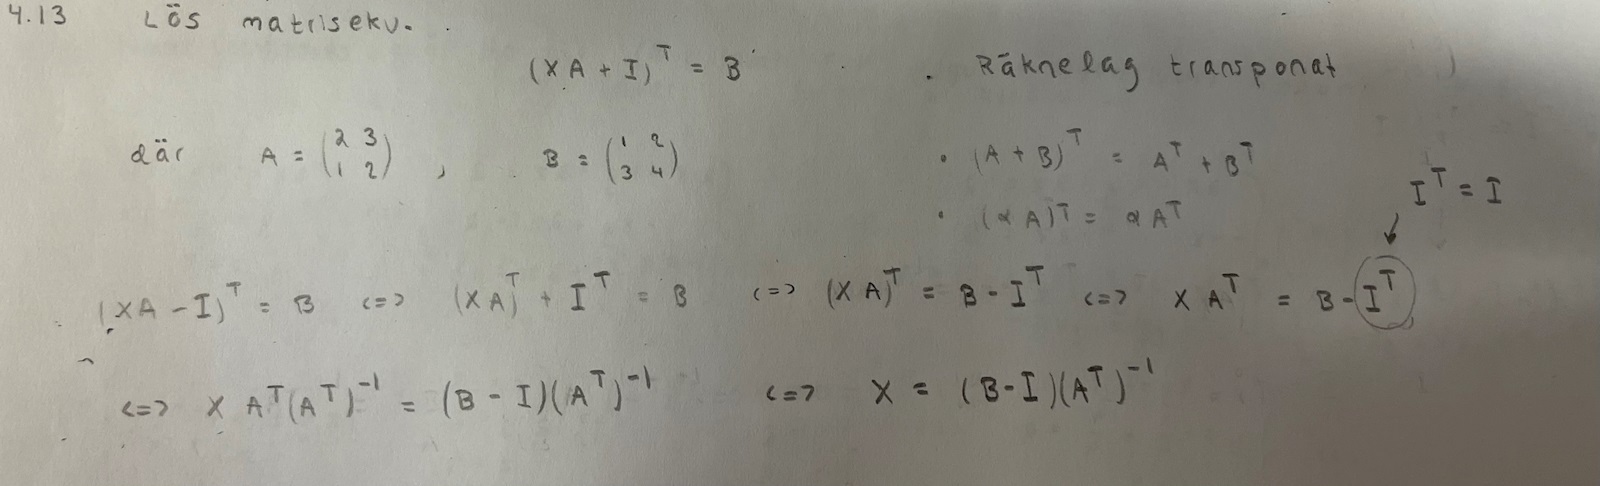 4.13 Lös matrisekv.
(XA + I)^T = B
. Räknelag transponat
där A = (2 3 / 1 2) , B = (1 2 / 3 4)
• (A + B)^T = A^T + B^T
I^T = I
• (αA)^T = αA^T
(XA - I)^T = B <=> (XA)^T + I^T = B <=> (XA)^T = B - I^T <=> X A^T = B - I^T
<=> X A^T (A^T)^-1 = (B - I)(A^T)^-1 <=> X = (B - I)(A^T)^-1